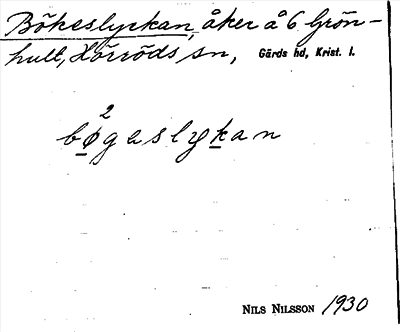 Bökeslyckan, åker å 6 Grön-
hult, Hörröds sn, Gärds hd, Krist. l.
2
bøgaslykan
NILS NILSSON 1930